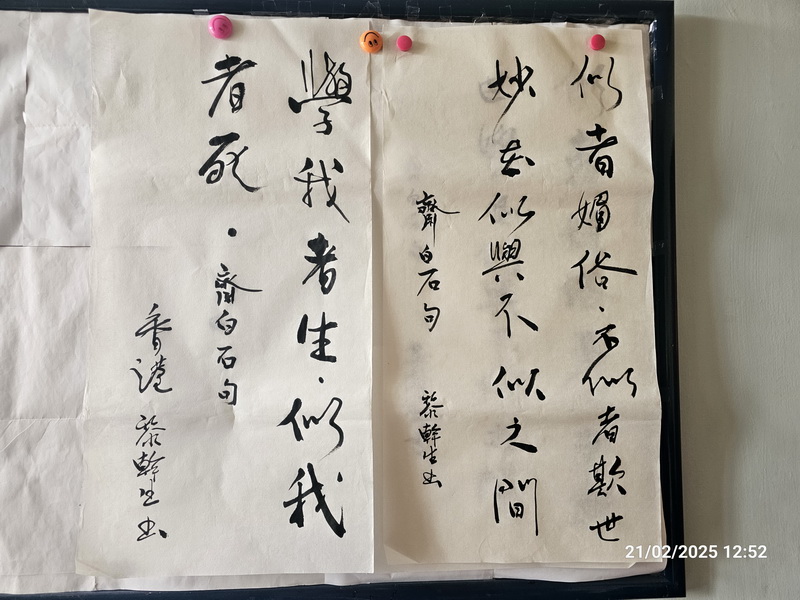 似者媚俗、不似者欺世
妙在似與不似之間
齊白石句 黎幹生书
學我者生、似我
者死．齊白石句
香港 黎幹生书
21/02/2025 12:52